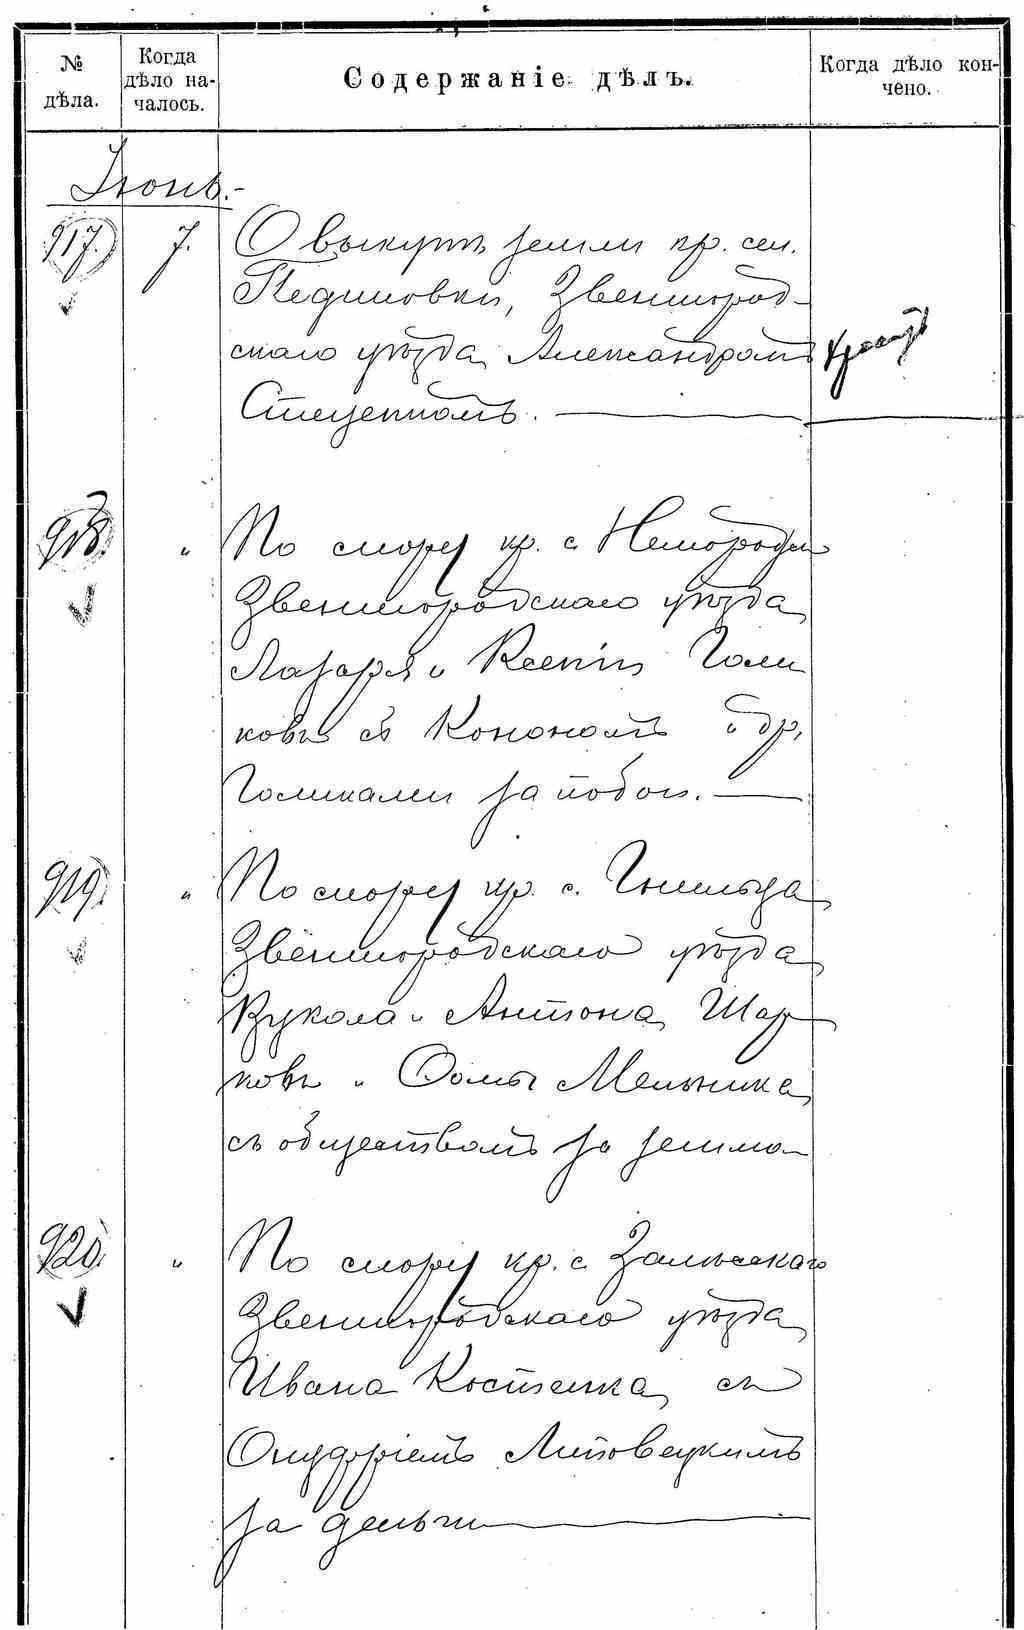 № дѣла.
Когда дѣло началось.
Содержаніе дѣлъ.
Когда дѣло кончено.
Іюнь.-
917. 7. О выкупѣ земли кр. сел.
Пединовки, Звенигород-
скаго уѣзда Александромъ
Стеценкомъ.
918. „ По спору кр. с. Неморожи
Звенигородскаго уѣзда
Лазаря и Ксеніи Голи
ковъ съ Конономъ и др.
Голиками за побои.
919. „ По спору кр. с. Гнильца
Звенигородскаго уѣзда
Вукола и Антона Шар
ковъ и Ѳомы Мельника
съ обществомъ за землю
920. „ По спору кр. с. Залѣсскаго
Звенигородскаго уѣзда
Ивана Костенка съ
Онуфріемъ Липовецкимъ
за деньги